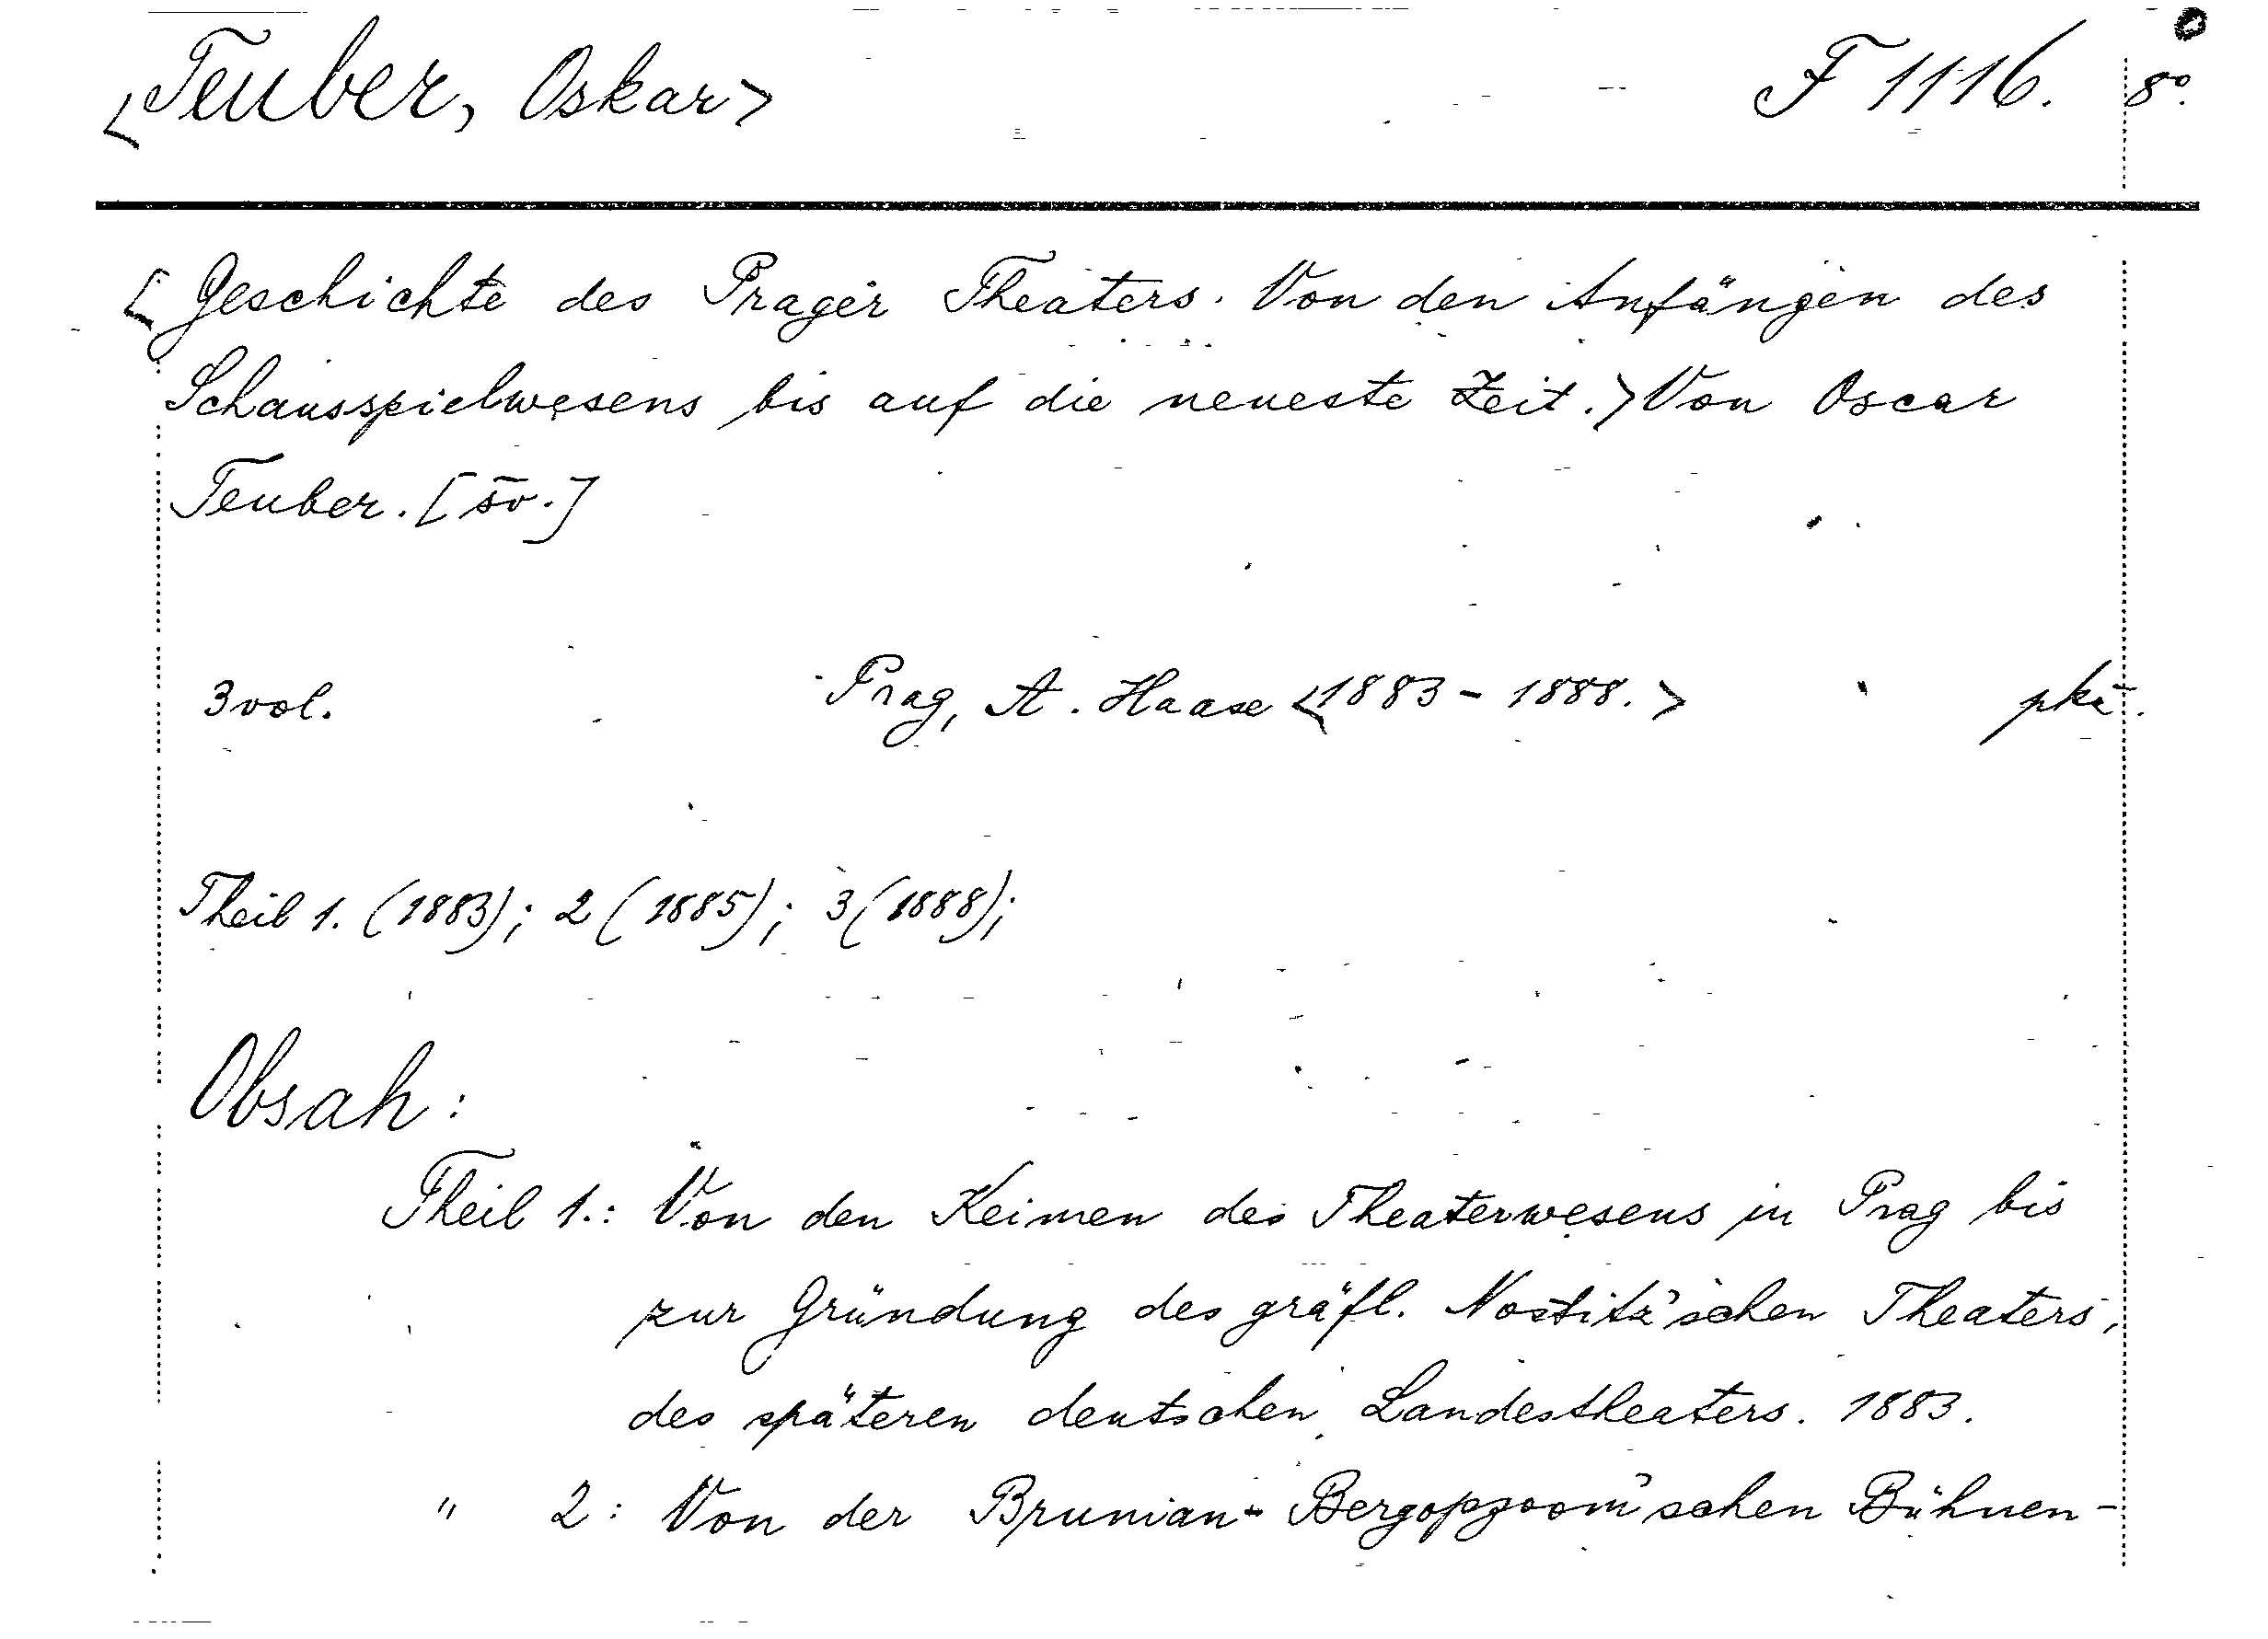 <Teuber, Oskar> F 1116. 8°.
[Geschichte des Prager Theaters. Von den Anfängen des
Schausspielwesens bis auf die neueste Zeit.> Von Oscar
Teuber. [sv.]
3 vol. Prag, A. Haase <1883-1888.>
Theil 1. (1883); 2 (1885); 3 (1888);
Obsah:
Theil 1.: Von den Keimen des Theaterwesens in Prag bis
zur Gründung des gräfl. Nostitz'schen Theaters,
des späteren deutschen Landestheaters. 1883.
" 2: Von der Brunian-Bergopzoom'schen Bühnen-